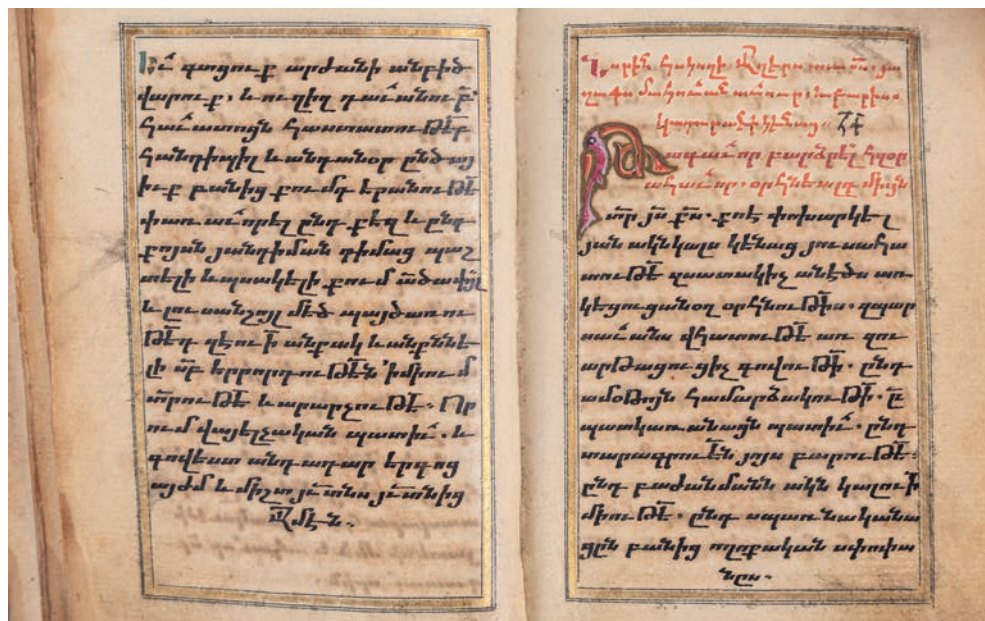 Եւ գտցուք արժանի անբիծ
վարուք, և ուղիղ դաւանութբ՝
հաւատոյն հաստատութեբ
հանդիպիլ և անդանօր ընծայ
իւք բանից քումդ երանութե
փառաւորել ընդ քեզ և ընդ
քոյան յանդիման դիմաց պաշ
տելի և պսակելի քում
և լուսանշոյլ մեծ պայծառու
թեդ զէութի անքակ և անքննե
լի սբ երրորդութեն ՚ի միում
տրութե և արարչութե։ Որ
ում վայելչական պատիւ. և
գովեստ անդադար երգոց
այժմ և միշտ յւտնս յւտնից
Ամէն։
Նորին
թագաւոր բարձրել հզօր
ահաւոր, օրհնեալդ միայն
տր յս քս. քոէ փոխարկել
յան ակնկալս կենաց յուսահա
տութե զստակիչ անեծս առ
կեցուցանօղ օրհնութիս. զպար
սաւանս վհատութե առ զու
արթացուցիչ գովութի. ընդ
ամօթոյն համարձակութի. ը
պատկառանացն պատիւ. ընդ
տարագրուեն յոյս բարութե։
ընդ բաժանմանն ակն կալութի
միութե. ընդ սպառնականա
ցըն բանից ողոքական սփոփա
նըս։